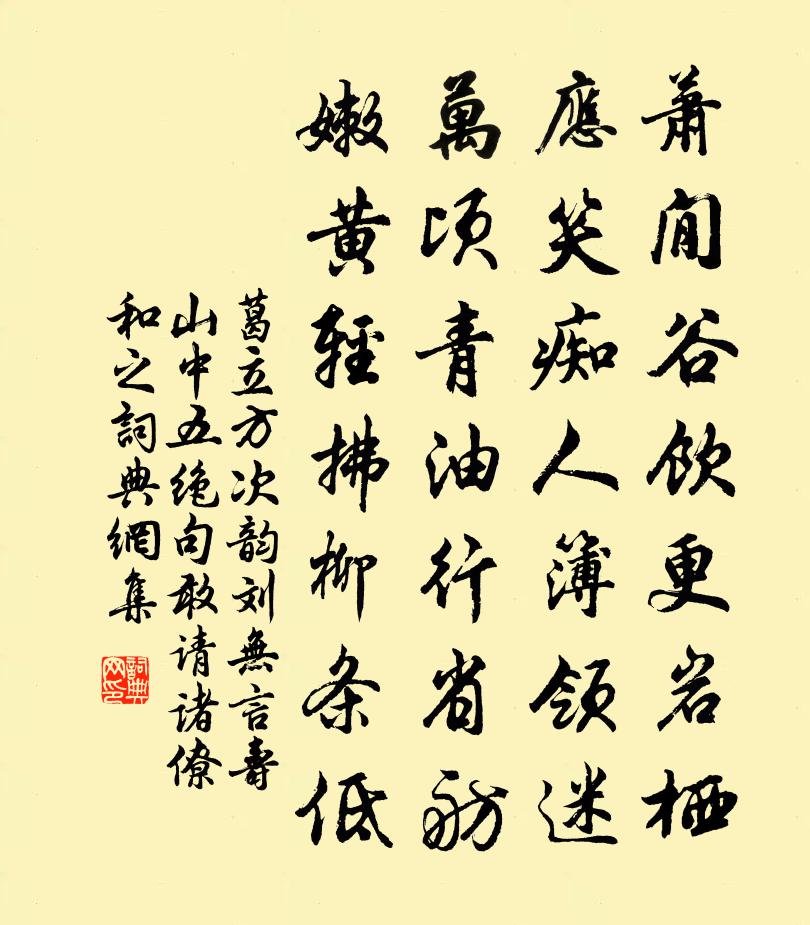 蕭閒谷飲更岩栖
應笑痴人簿領迷
萬頃青油行省舫
嫩黃輕拂柳条低
葛立方次韵刘無言壽
山中五绝句敢请诸僚
和之詞典網集
詞典
网印